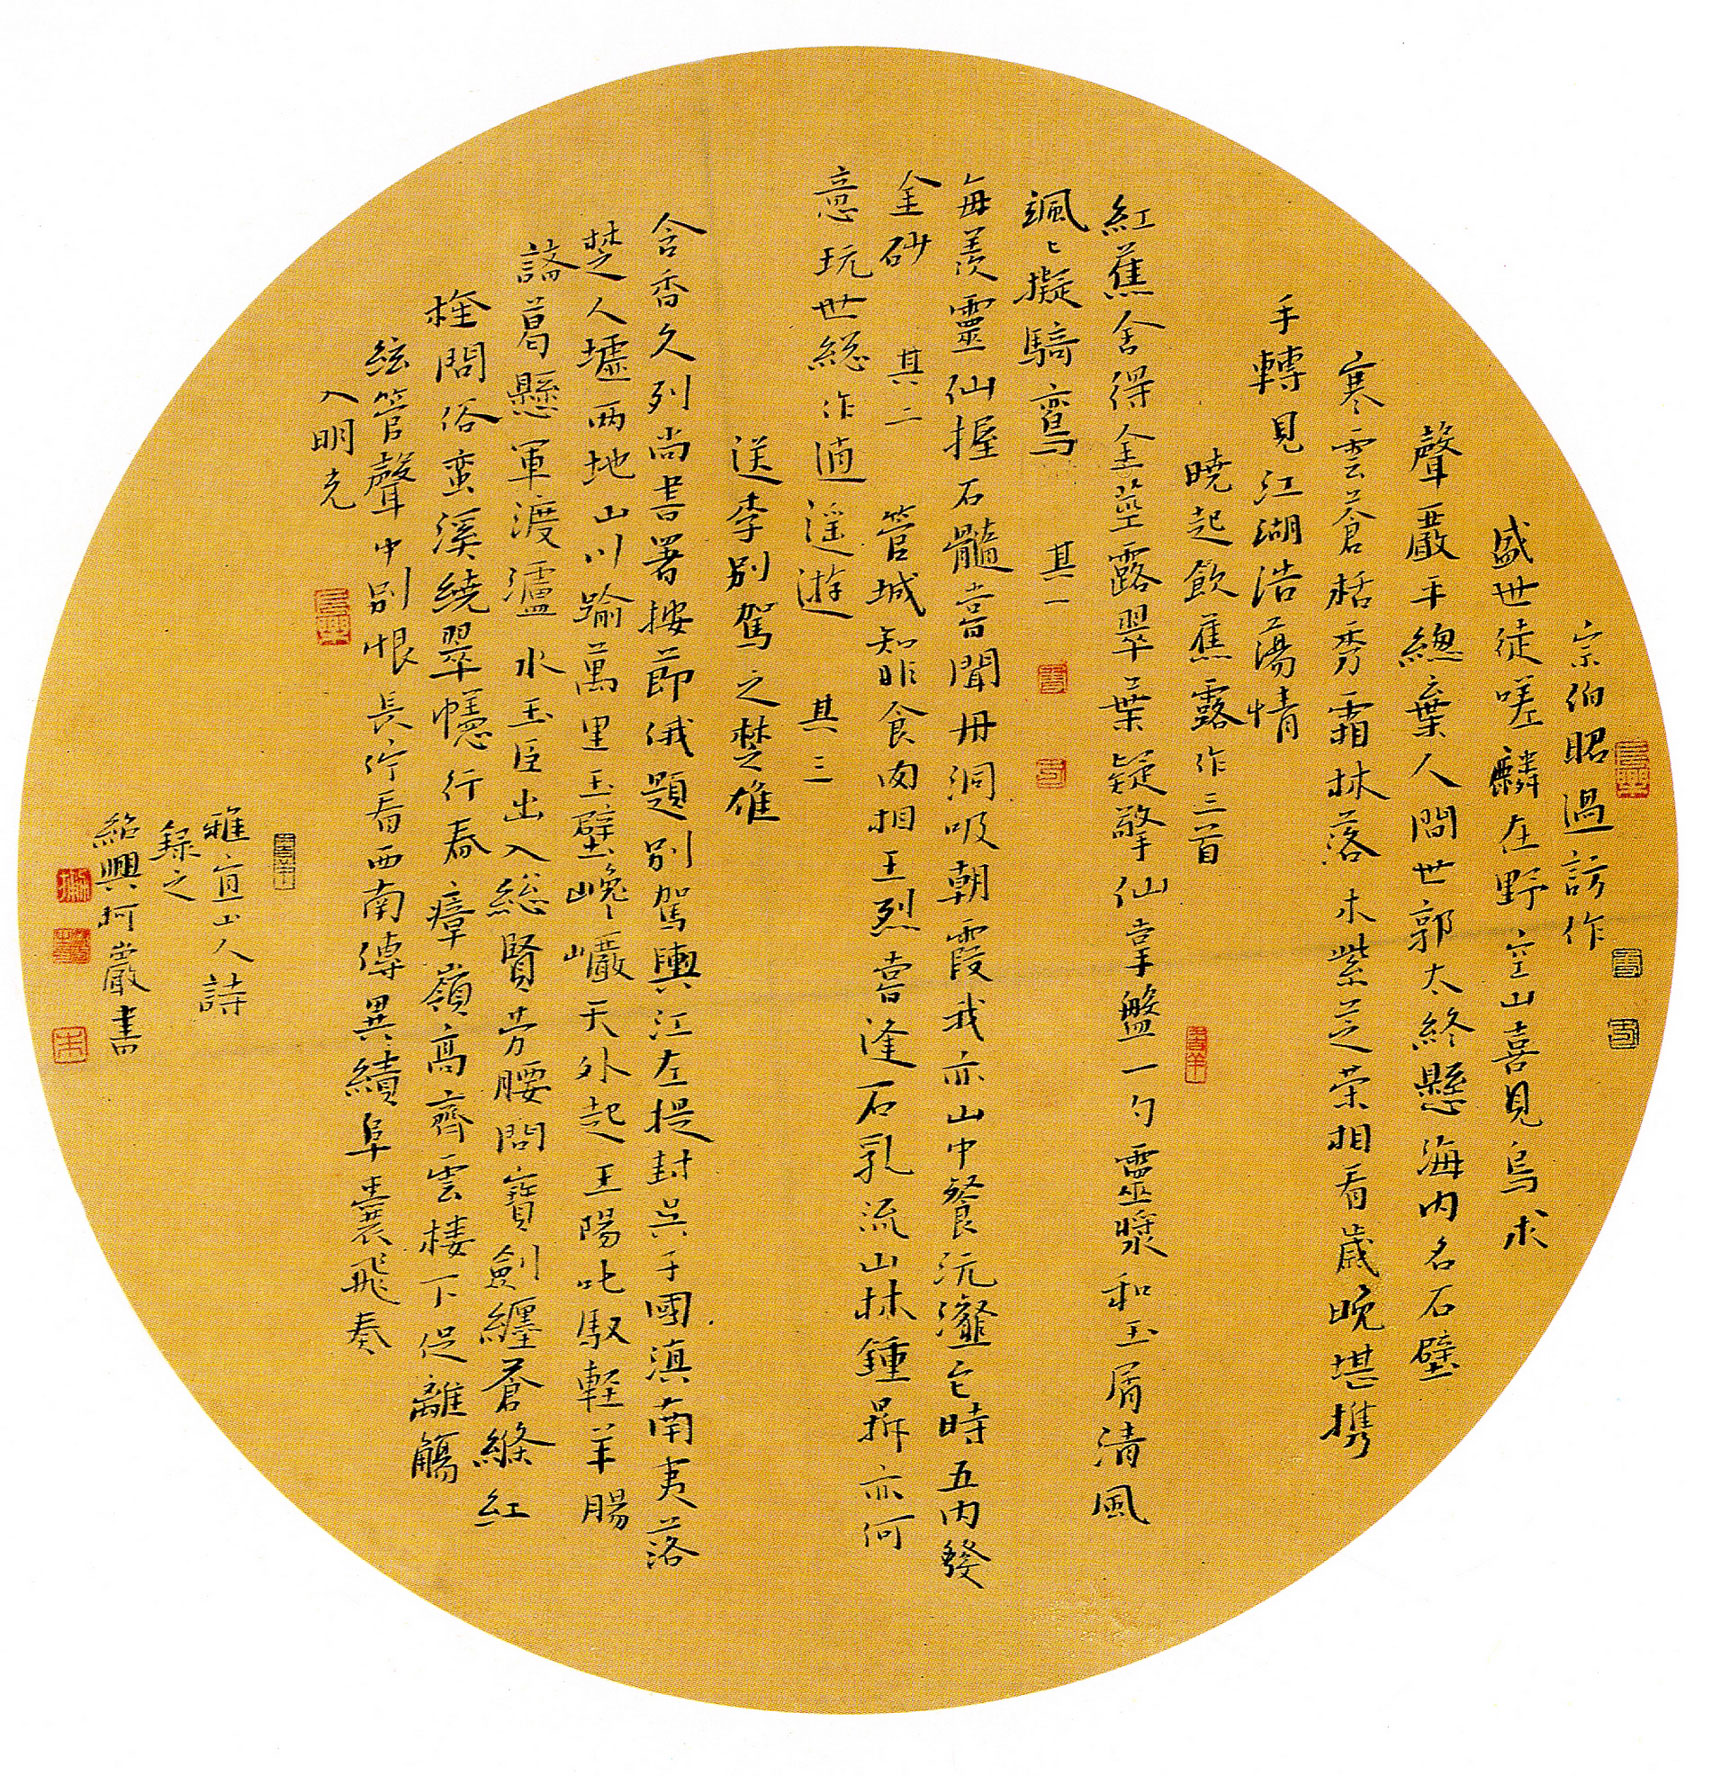 宗伯昭過訪作
盛世徒嗟麟在野空山喜見烏求
聲嚴平總棄人間世郭太終懸海内名石壁
寒雲蒼栝秀霜林落木紫芝荣相看歲晚堪携
手轉見江湖浩蕩情
曉起飲蕉露作三首
紅蕉舍得金莖露翠葉疑擎仙掌盤一勺靈漿和玉屑清風
颯〻擬騎鸞 其一
每羨靈仙握石髓嘗聞丹洞吸朝霞我亦山中餐沆瀣七時五内發
金砂 其二 管城知昨食肉相王烈嘗逢石乳流山林鍾鼎亦何
意玩世総作逍遥遊 其三
送李别駕之楚雄
含香久列尚書署按節俄題别駕輿江左提封吴子國滇南夷落
楚人墟兩地山川踰萬里玉壁巉〻巗天外起王陽叱馭輕羊腸
諸葛懸軍渡瀘水王臣出入総賢劳腰間寶劍纏蒼縧紅
栓問俗蛮溪繞翠幰行春瘴嶺高齊雲樓下促離觴
絃管聲中别恨長佇看西南傳異績阜囊飛奏
入明光
雅宜山人詩
録之
紹興柯巖書